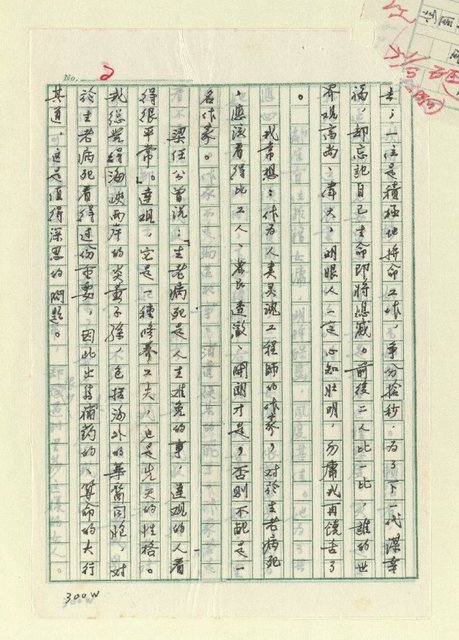 No. 2
去；一位是積極地拚命工作，爭分搶秒，為了下一代謀幸
福，卻忘記自己生命即將熄滅。前後二人比一比，誰的世
界觀高尚、偉大，明眼人一定心知肚明，勿庸我再饒舌了
。
我常想：作為人類靈魂工程師的作家，對於生老病死
，應該看得比工人、農民透澈、開朗才是，否則不配是一
名作家。
梁任公曾說：「生老病死是人生難免的事，達觀的人看
得很平常。」達觀，它是一種修養工夫，也是先天的性格。
我總覺得海峽兩岸的炎黃子孫，包括海外的華裔同胞，對
於生老病死看得過份重要，因此出售補藥的、算命的大行
其道，這是值得深思的問題。
300W